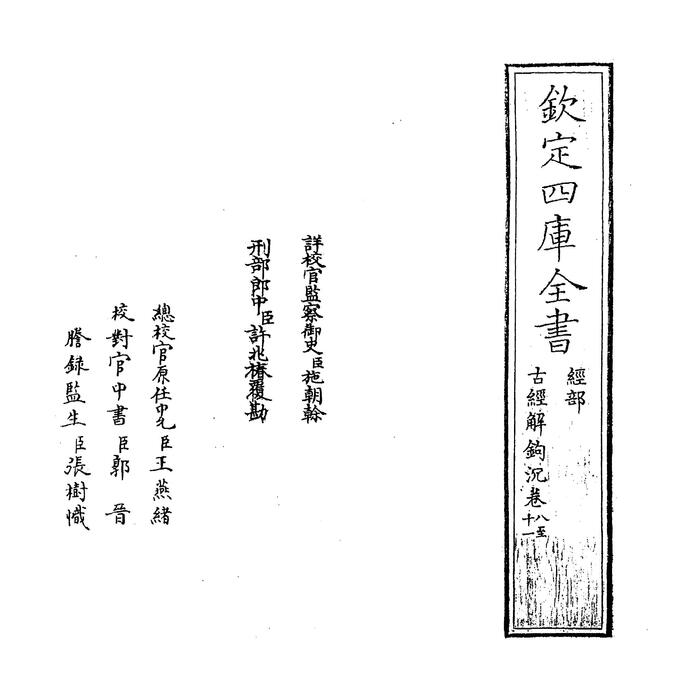 欽定四庫全書
經部
古經解鉤沉卷八至十一
詳校官監察御史臣施朝幹
刑部郎中臣許兆椿覆勘
總校官原任中允臣王燕緒
校對官中書臣郭晉
謄錄監生臣張樹幟